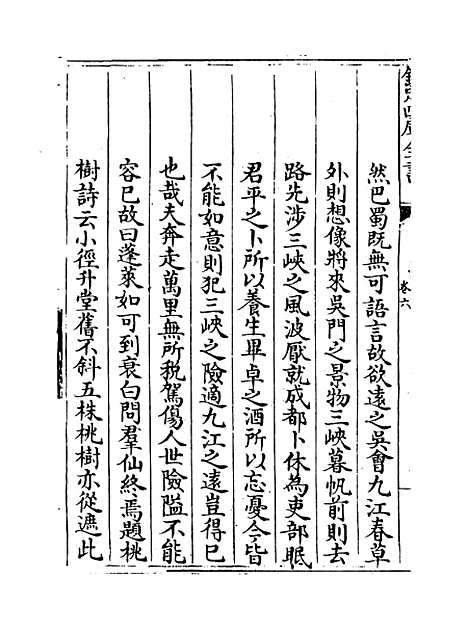 欽定四庫全書
卷六
然巴蜀既無可語言故欲遠之吳會九江春草
外則想像將來吳門之景物三峽暮帆前則去
路先涉三峽之風波厭就成都卜休為吏部眠
君平之卜所以養生畢卓之酒所以忘憂今皆
不能如意則犯三峽之險適九江之遠豈得已
也哉夫奔走萬里無所稅駕傷人世險隘不能
容已故曰蓬萊如可到衰白問羣仙終焉題桃
樹詩云小徑升堂舊不斜五株桃樹亦從遮此